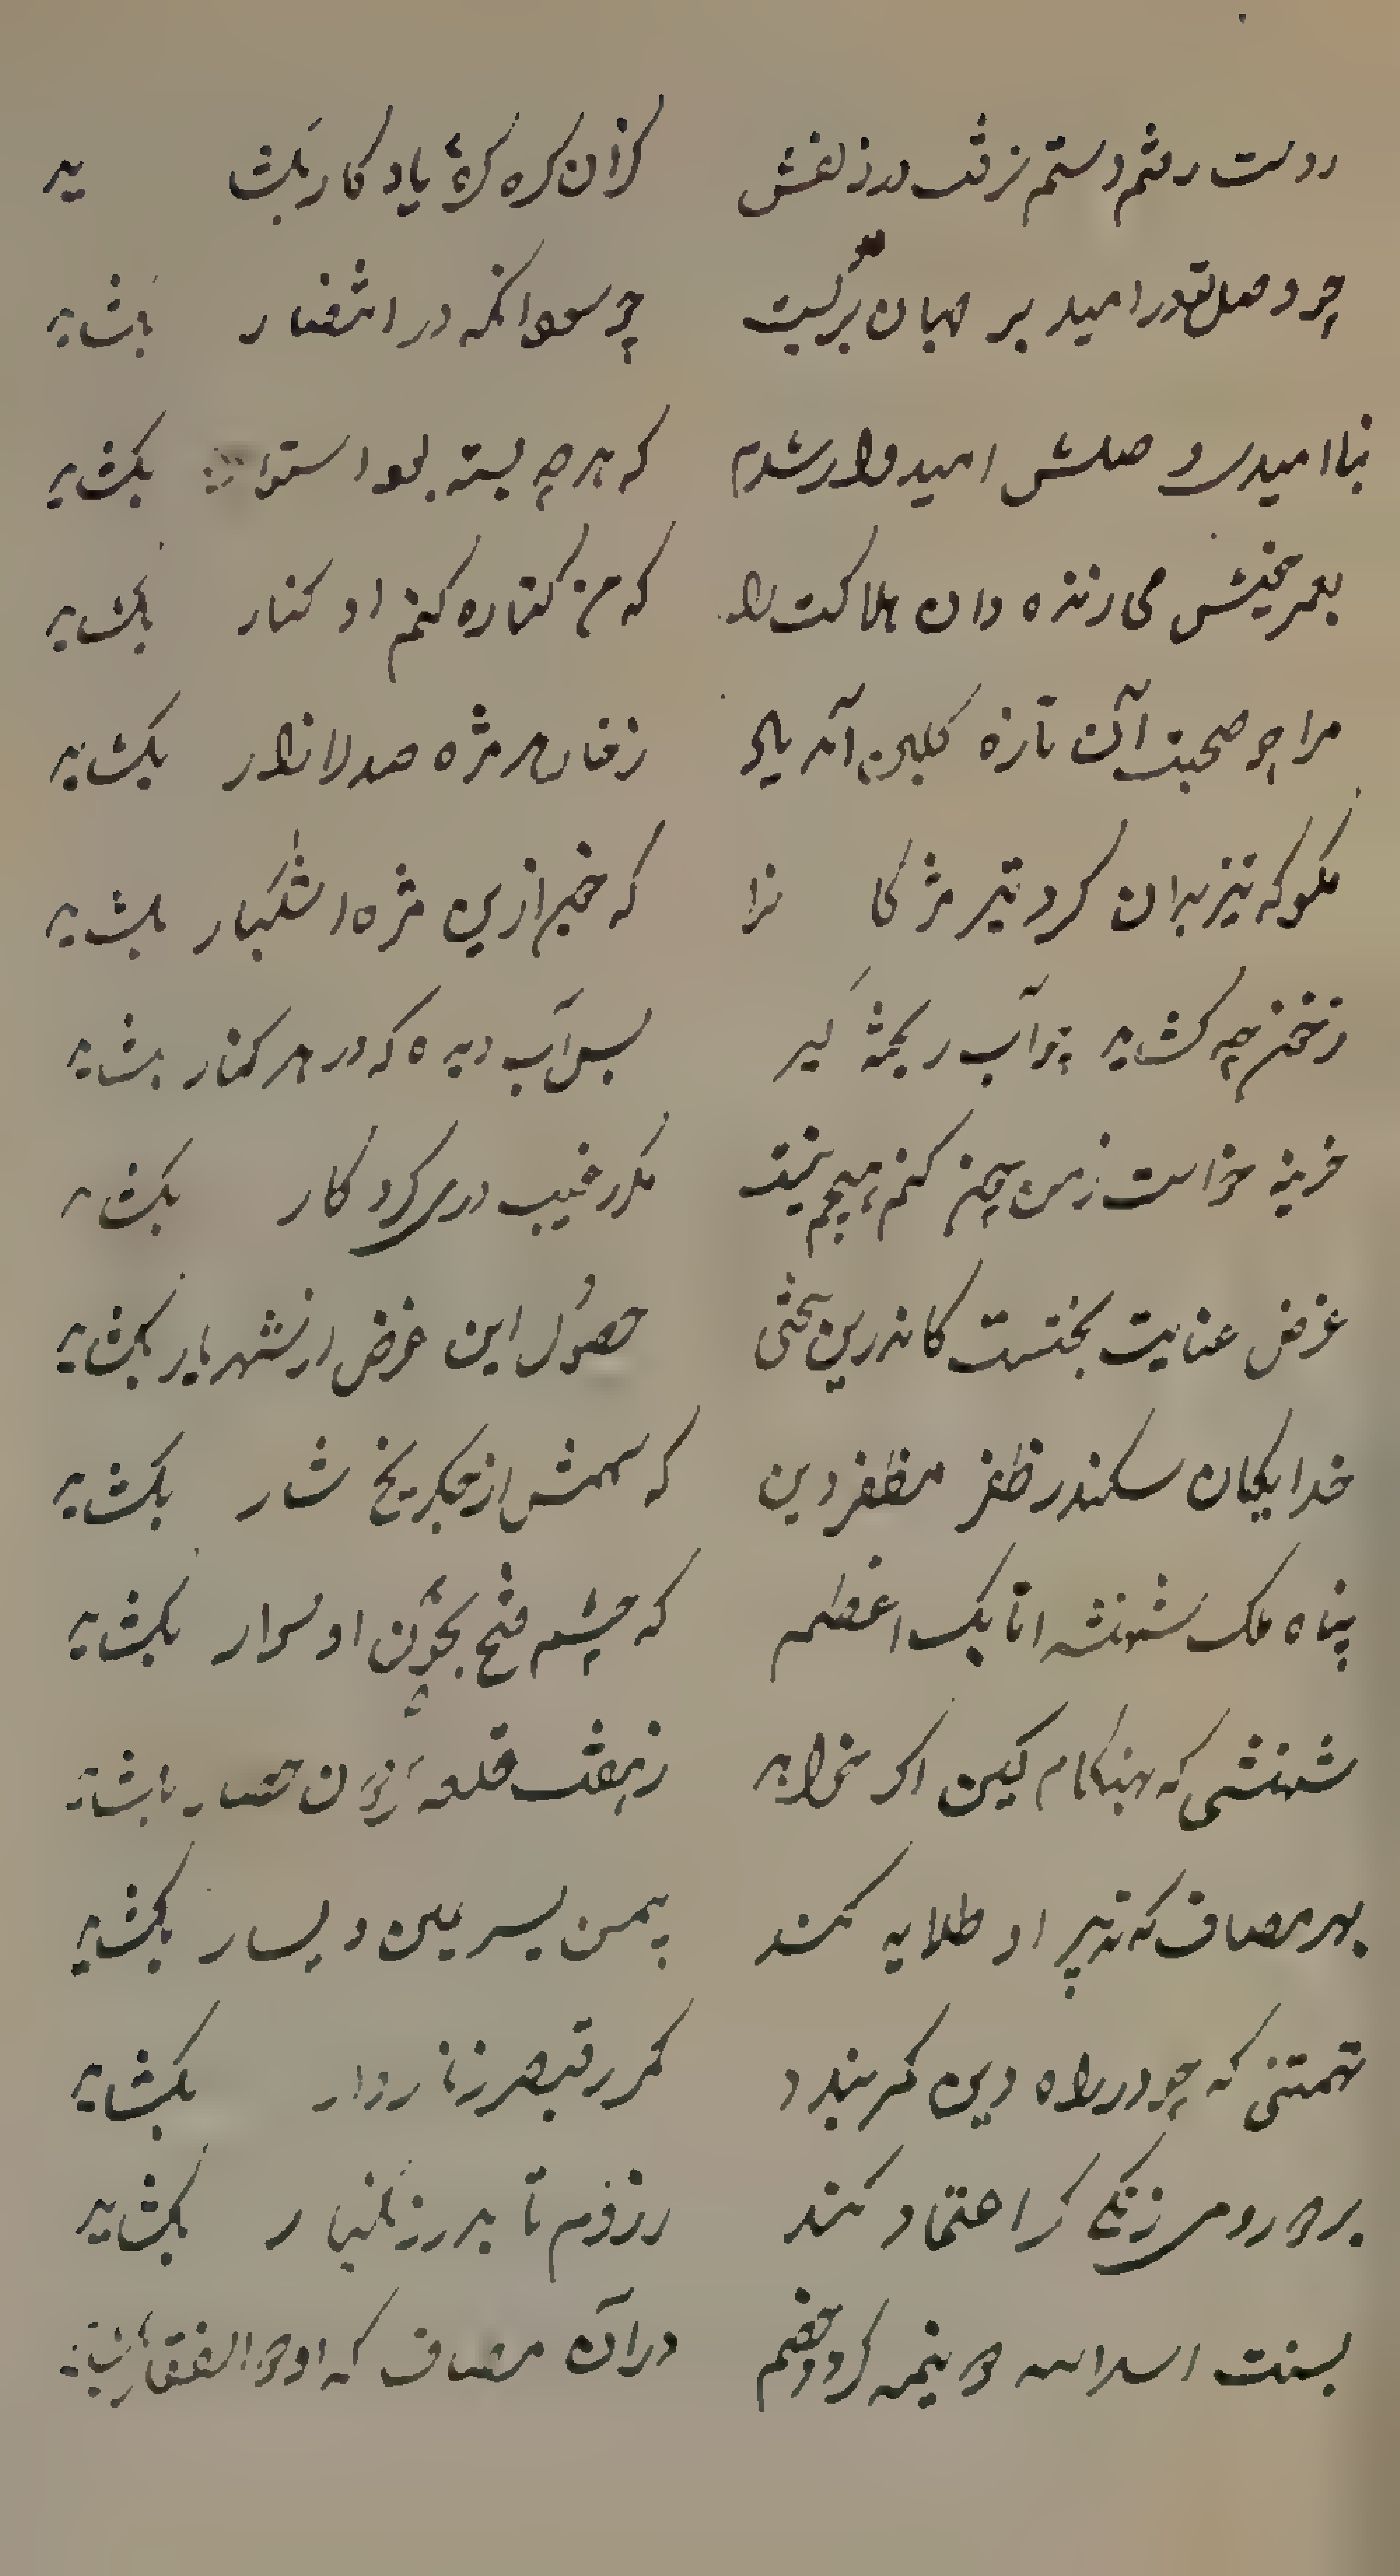 ز دست رفتم و دستم نرفت در زلفش کزان گره گرهٔ یاد کار بکشا ید
چو وصل تو در امید بر جهان بربست چو سود آنکه در انتظار بکشاید
بنا امیدی وصلش امیدوار شدم که هر چه بسته بود استوار بکشاید
بعمر خویش می ارزنده دان هلاکت را که من کناره کنم او کنار بکشاید
مرا چو صحبت آن تازه کلبن آمد یاد ز خار هر مژه صد لاله زار بکشاید
مکو که تیز بدان کرد تیر مژکا نرا که خون ازین مژه اشکبار بکشاید
ز خنجر چه کشاید چو آب ریخته کیر بس آب دیده که در هر کنار بکشاید
خزینه خواست ز من چون کنم هیچم نیست مکر ز غیب دری کردکار بکشاید
غرض عنایت بختست کاندرین سختی حصول این غرض از شهریار بکشاید
خدایکان سکندر ظفر مظفر دین که سهمش از جکر یخ شرار بکشاید
پناه ملک شهنشه اتابک اعظم که چشم فتح بچون او سوار بکشاید
شهنشهی که بهنکام کین اکر خواهد ز هفت قلعه کردون حصار بکشاید
بهر مصاف که تدبیر او طلایه کند بیمن یسر یمین و یسار بکشاید
تهمتنی که چو در راه دین کمر بندد کمر ز قیصر زنار دار بکشاید
برد رومی زنکی کر اعتماد کند ز روم تا بدر زنکبار بکشاید
بسنت اسد الله دو نیمه کردد خصم در آن مصاف که او ذوالفقار بکشاید